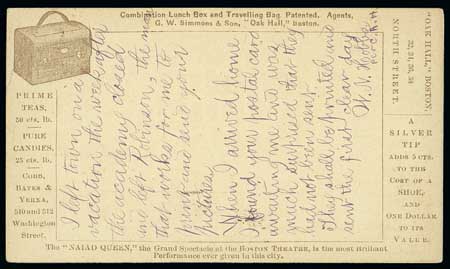 Combination Lunch Box and Travelling Bag. Patented. Agents,
G. W. Simmons & Son, "Oak Hall," Boston.
PRIME
TEAS,
50 cts. lb.
PURE
CANDIES,
25 cts. lb.
COBB,
BATES &
YERXA,
510 and 512
Washington
Street.
I left town on a
vacation the week after
the academy closed
and left Robinson, the man
that works for me to
print and send your
pictures.
When I arrived home
I found your postal card
awaiting me and was
much surprised that they
had not been sent.
They shall be printed and
sent the first clear day
W. N.
"OAK HALL," BOSTON,
32, 34, 36, 38
NORTH STREET
A
SILVER
TIP
ADDS 5 CTS.
TO THE
COST OF A
SHOE,
AND
ONE DOLLAR
TO ITS
VALUE.
The "NAIAD QUEEN," the Grand Spectacle at the BOSTON THEATRE, is the most Brilliant
Performance ever given in this city.